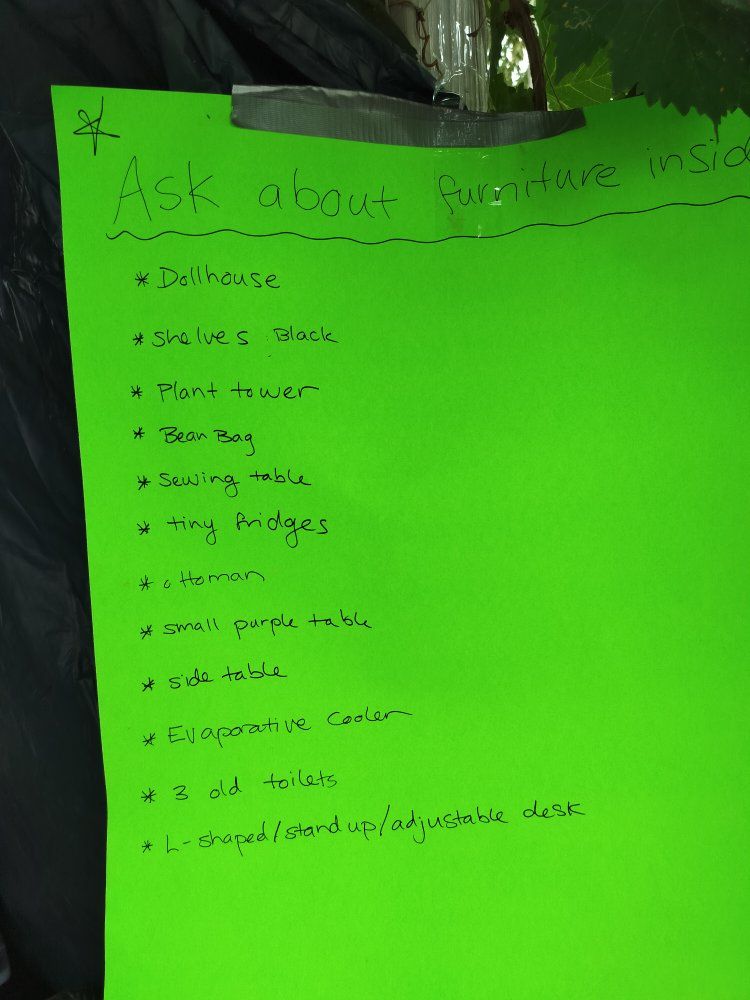 Ask about furniture insid
* Dollhouse
* shelves Black
* Plant tower
* Bean Bag
* Sewing table
* tiny fridges
* ottoman
* small purple table
* side table
* Evaporative Cooler
* 3 old toilets
* L-shaped/stand up/adjustable desk